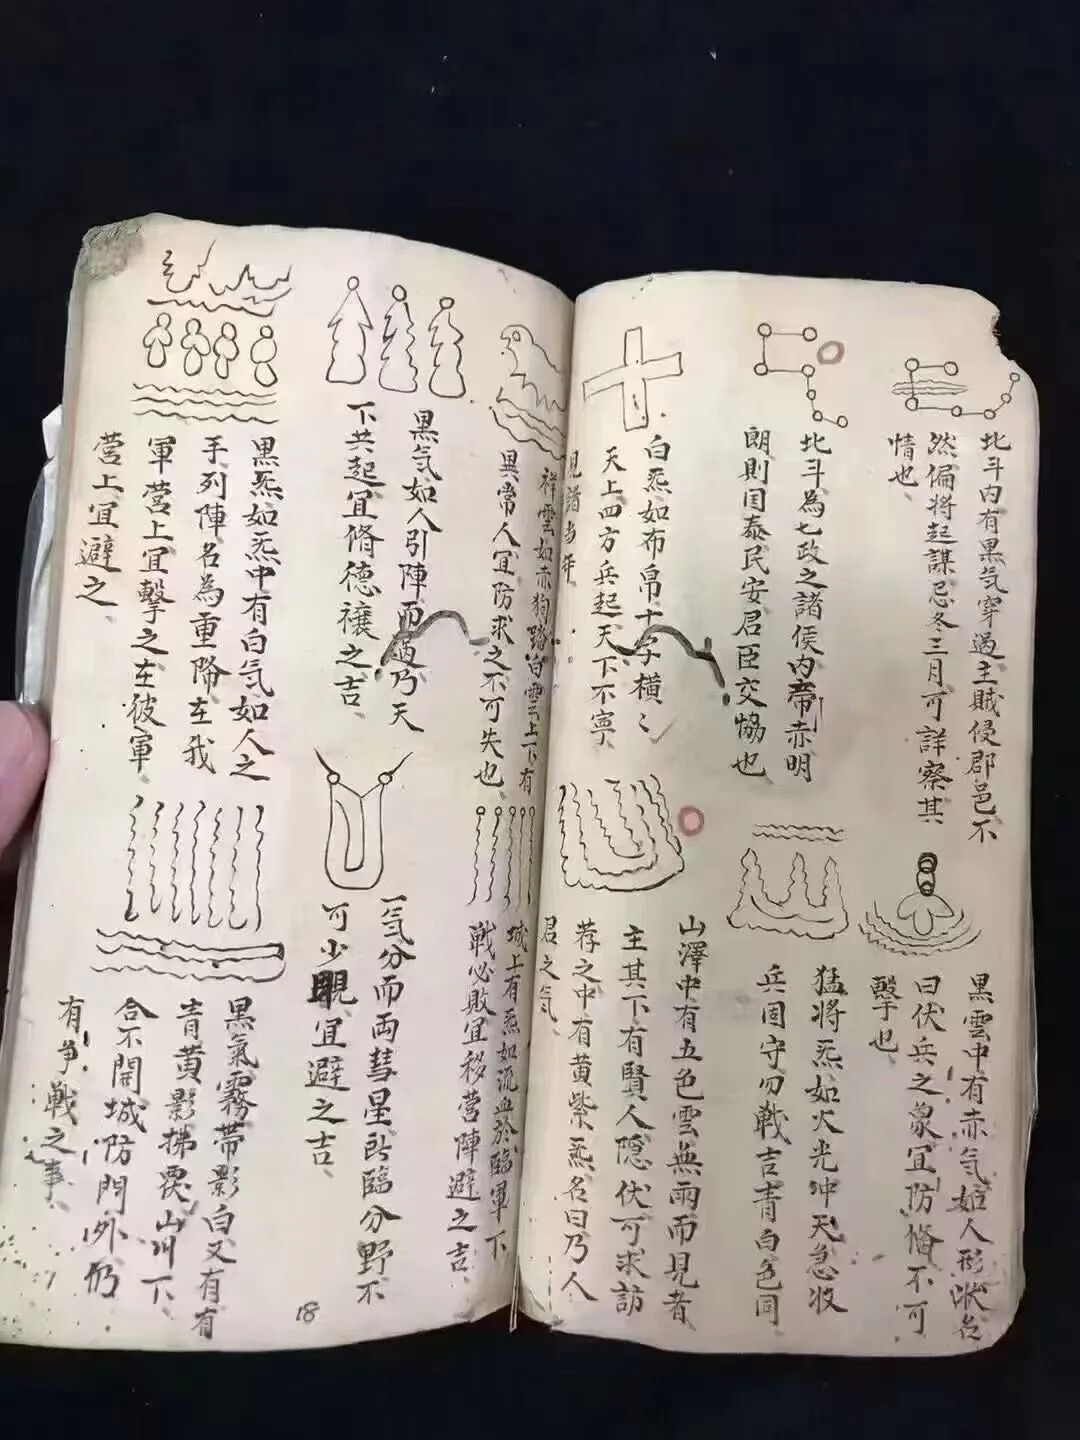 北斗内有黒気穿過主賊侵郡邑不
然偏將起謀忌冬三月可詳察其
情也
北斗為七政之諸侯内帝赤明
朗則国泰民安君臣交恊也
白炁如布帛十字橫〻
天上四方兵起天下不寧
見諸当年
黑雲中有赤気如人形状名
曰伏兵之象宜防俻不可
擊也
猛將炁如火光冲天急收
兵固守勿戰吉青白色同
山澤中有五色雲無雨而見者
主其下有賢人隠伏可求訪
荐之中有黄紫炁名曰乃人
君之気
祥雲如赤狗踏白雲上下有
異常人宜防求之不可失也
黑気如人引陣而過乃天
下共起宜脩德禳之吉
黑炁如炁中有白気如人之
手列陣名為重降左我
軍營上宜擊之左彼軍
營上宜避之
城上有炁如流血於臨軍下
戰必敗宜移營陣避之吉
一気分而両彗星所臨分野不
可少覩宜避之吉
黑氣霧帯影白又有有
青黄影拂畏山川下
合不開城防門外仍
有争戰之事
18